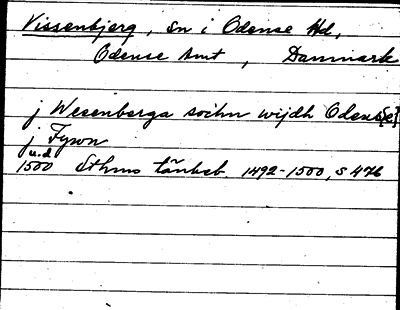 Vissenbjerg, sn i Odense Hd,
Odense Amt, Danmark
j Wesenberga sochn wijdh Odens[e]
j Fywn
u.d
1500 Sthms tänkeb. 1492-1500, s 476